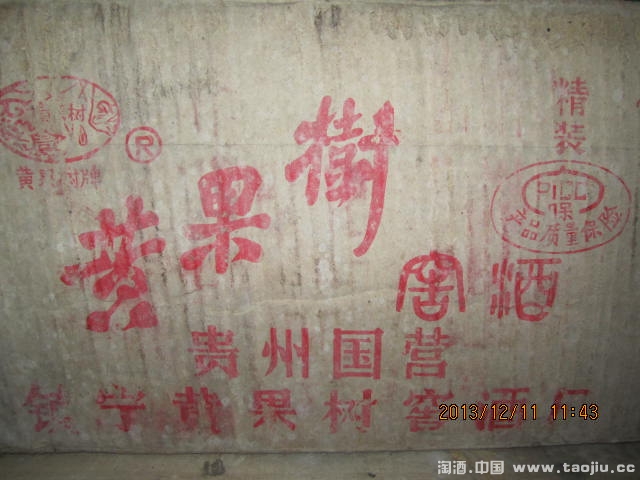 精装
黄果树
®
黄果树牌
黄果树
PICC
保
产品质量保险
窖酒
贵州国营
镇宁黄果树窖酒厂
2013/12/11 11:43
淘酒.中国 www.taojiu.cc